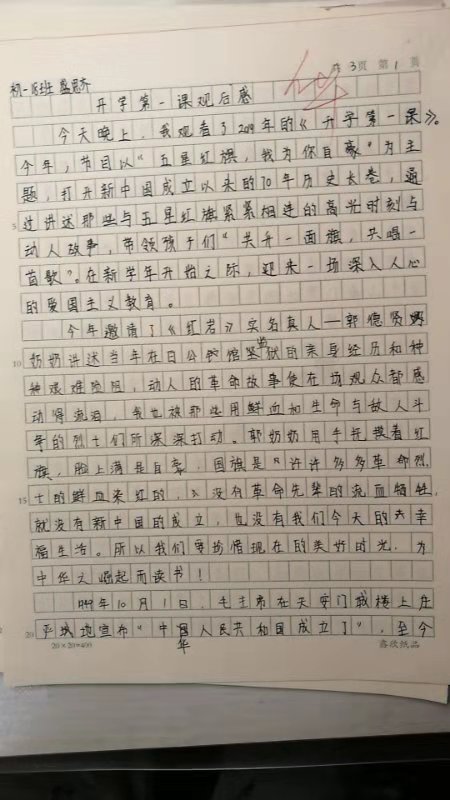 共3页 第1页
初一
开学第一课观后感
今天晚上，我观看了2019年的《开学第一课》。
今年，节目以“五星红旗，我为你自豪”为主
题，打开新中国成立以来的70年历史长卷，通
5 过讲述那些与五星红旗紧紧相连的高光时刻与
动人故事，带领孩子们“共升一面旗，共唱一
首歌”。在新学年开始之际，迎来一场深入人心
的爱国主义教育。
今年邀请了《红岩》实名真人—郭德贤
10 奶奶讲述当年在白公馆监狱的亲身经历和种
种艰难险阻，动人的革命故事使在场观众都感
动得流泪，我也被那些用鲜血和生命与敌人斗
争的烈士们所深深打动。郭奶奶用手抚摸着红
旗，脸上满是自豪，国旗是“许许多多革命烈
15 士的鲜血染红的，没有革命先辈的流血牺牲，
就没有新中国的成立，也没有我们今天的幸
福生活。所以我们要珍惜现在的美好时光，为
中华之崛起而读书！
1949年10月1日，毛主席在天安门城楼上庄
20 严地宣布“中华人民共和国成立了”，至今
20×20=400
鑫欣纸品